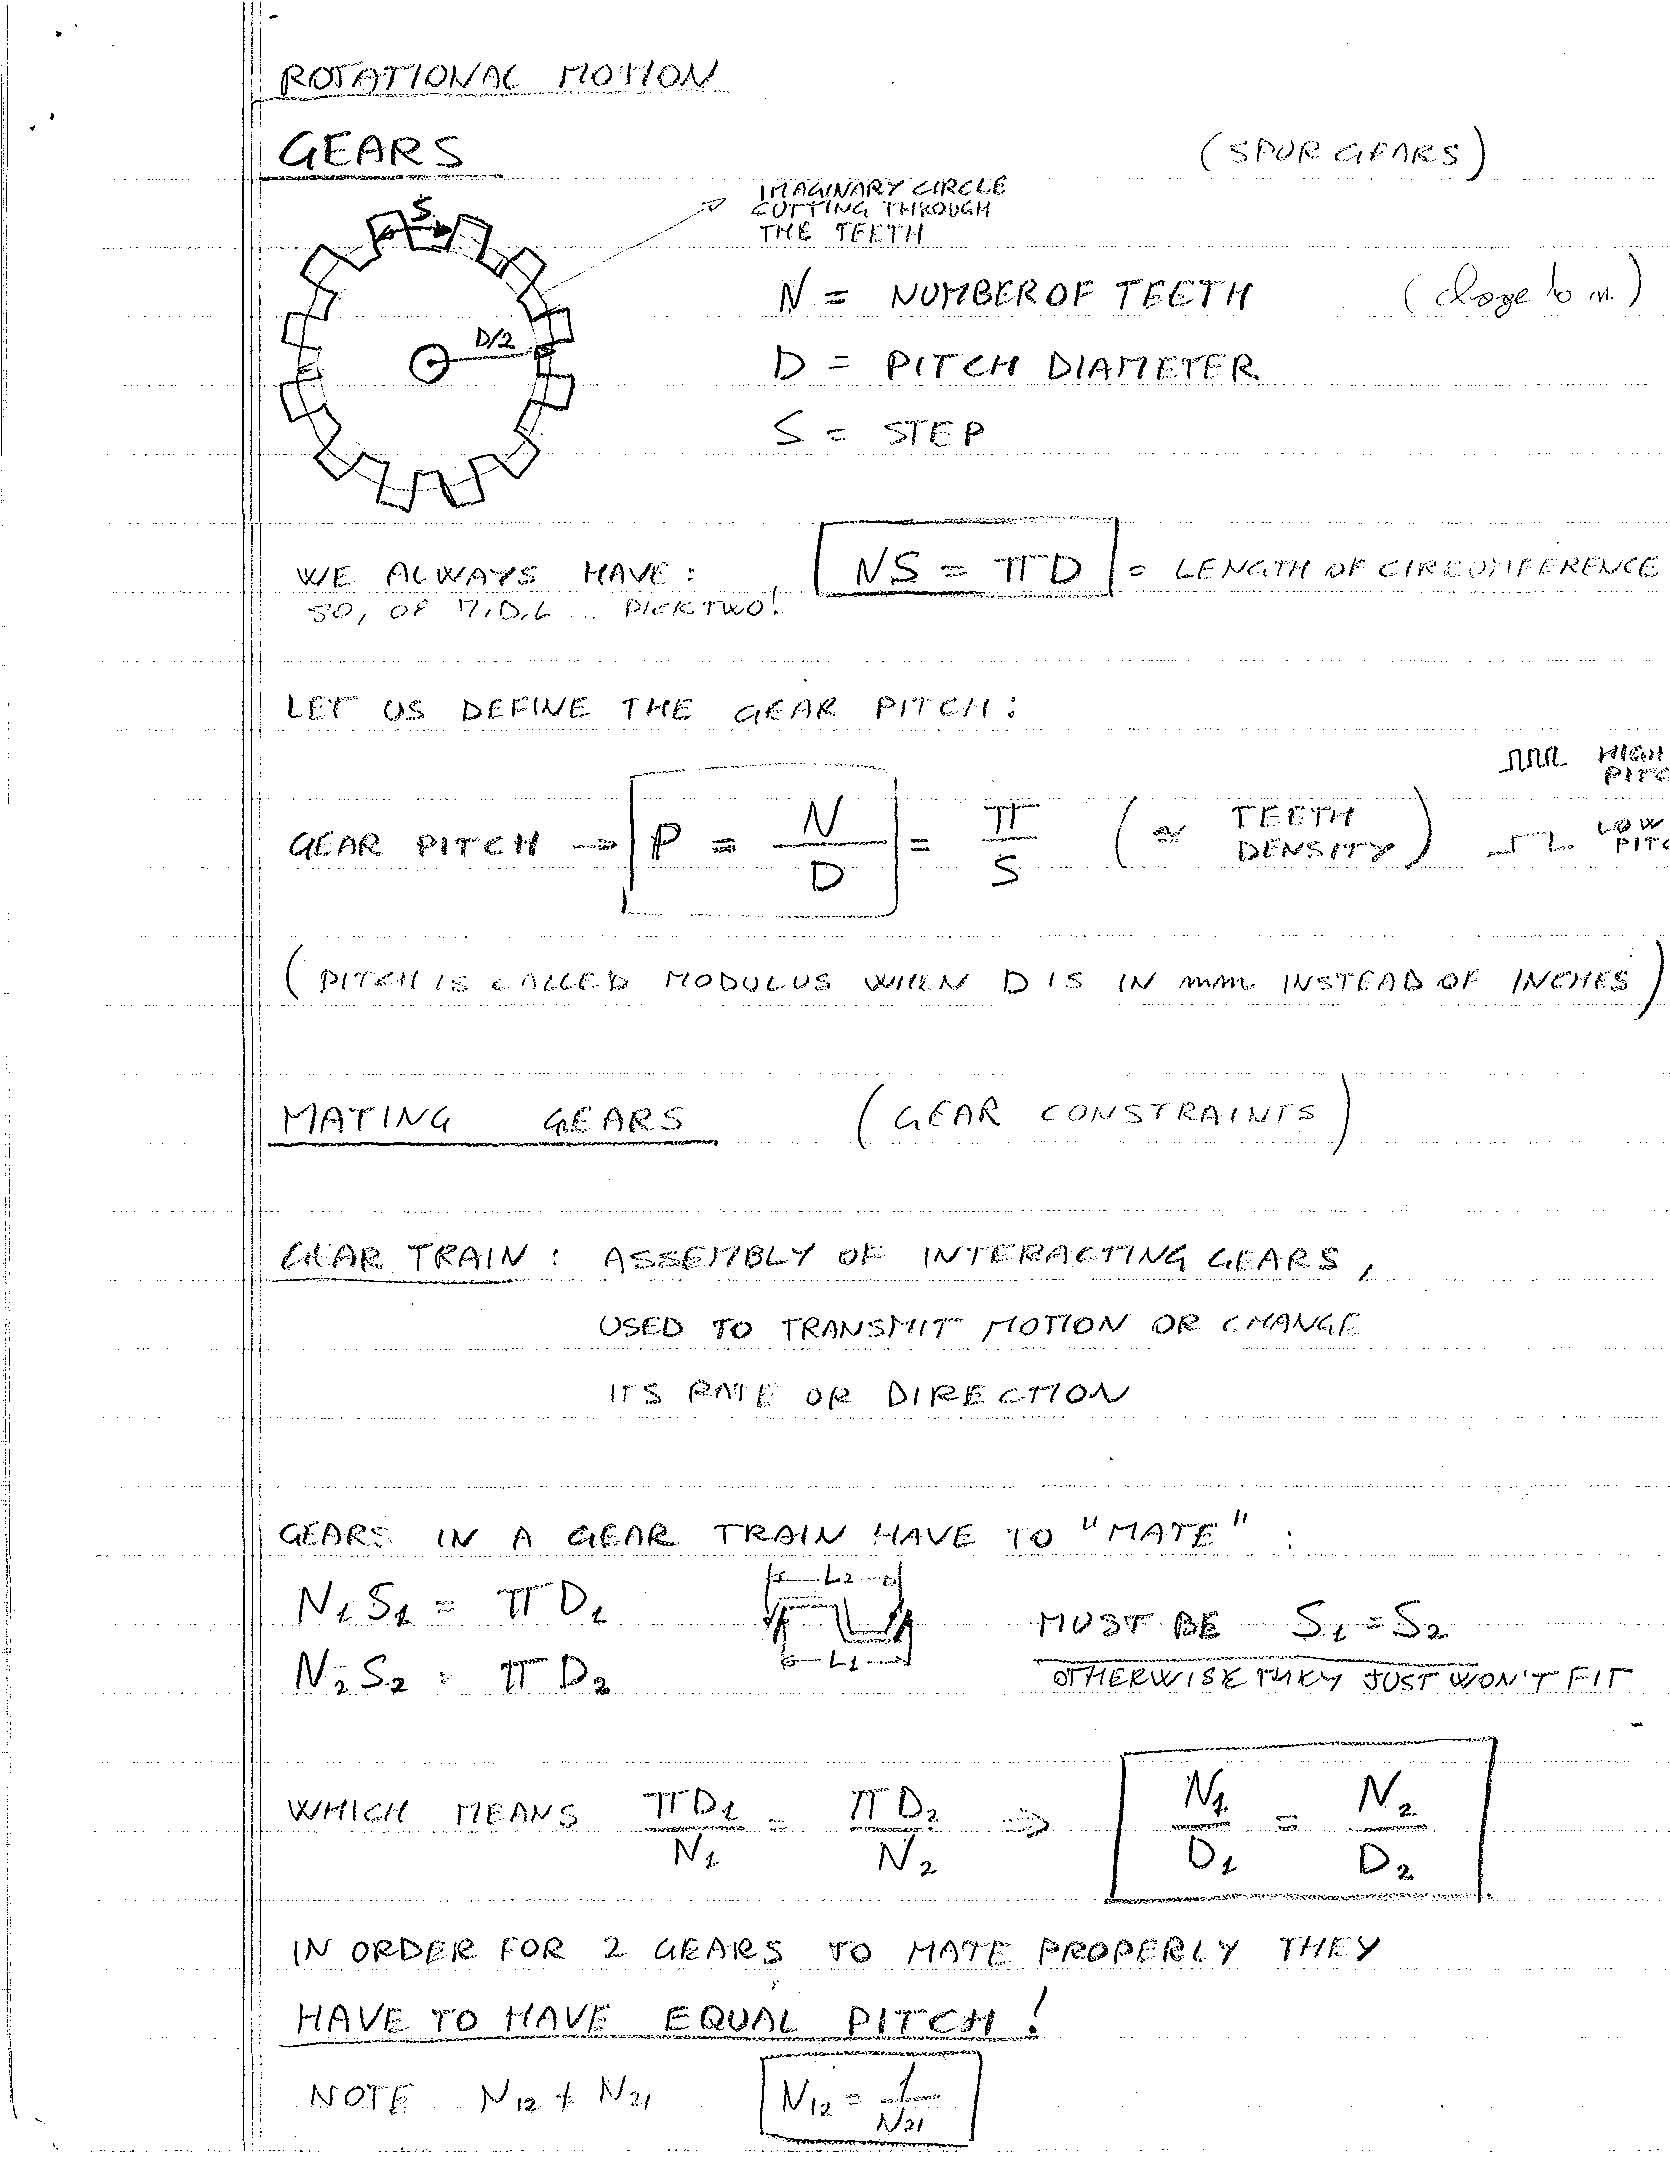 ROTATIONAL MOTION
GEARS (SPUR GEARS)
S
IMAGINARY CIRCLE
CUTTING THROUGH
THE TEETH
N = NUMBER OF TEETH
D/2
D = PITCH DIAMETER
S = STEP
WE ALWAYS HAVE: NS = πD = LENGTH OF CIRCUMFERENCE
SO, OF N,D,L ... PICK TWO!
LET US DEFINE THE GEAR PITCH:
HIGH
PITC
GEAR PITCH → P = N/D = π/S (≈ TEETH DENSITY)
LOW
PITC
(PITCH IS CALLED MODULUS WHEN D IS IN mm INSTEAD OF INCHES)
MATING GEARS (GEAR CONSTRAINTS)
GEAR TRAIN: ASSEMBLY OF INTERACTING GEARS,
USED TO TRANSMIT MOTION OR CHANGE
ITS RATE OR DIRECTION
GEARS IN A GEAR TRAIN HAVE TO "MATE":
L2
N1S1 = πD1 MUST BE S1 = S2
L1
N2S2 = πD2 OTHERWISE THEY JUST WON'T FIT
WHICH MEANS πD1/N1 = πD2/N2 ⇒ N1/D1 = N2/D2
IN ORDER FOR 2 GEARS TO MATE PROPERLY THEY
HAVE TO HAVE EQUAL PITCH!
NOTE N12 ≠ N21 N12 = 1/N21